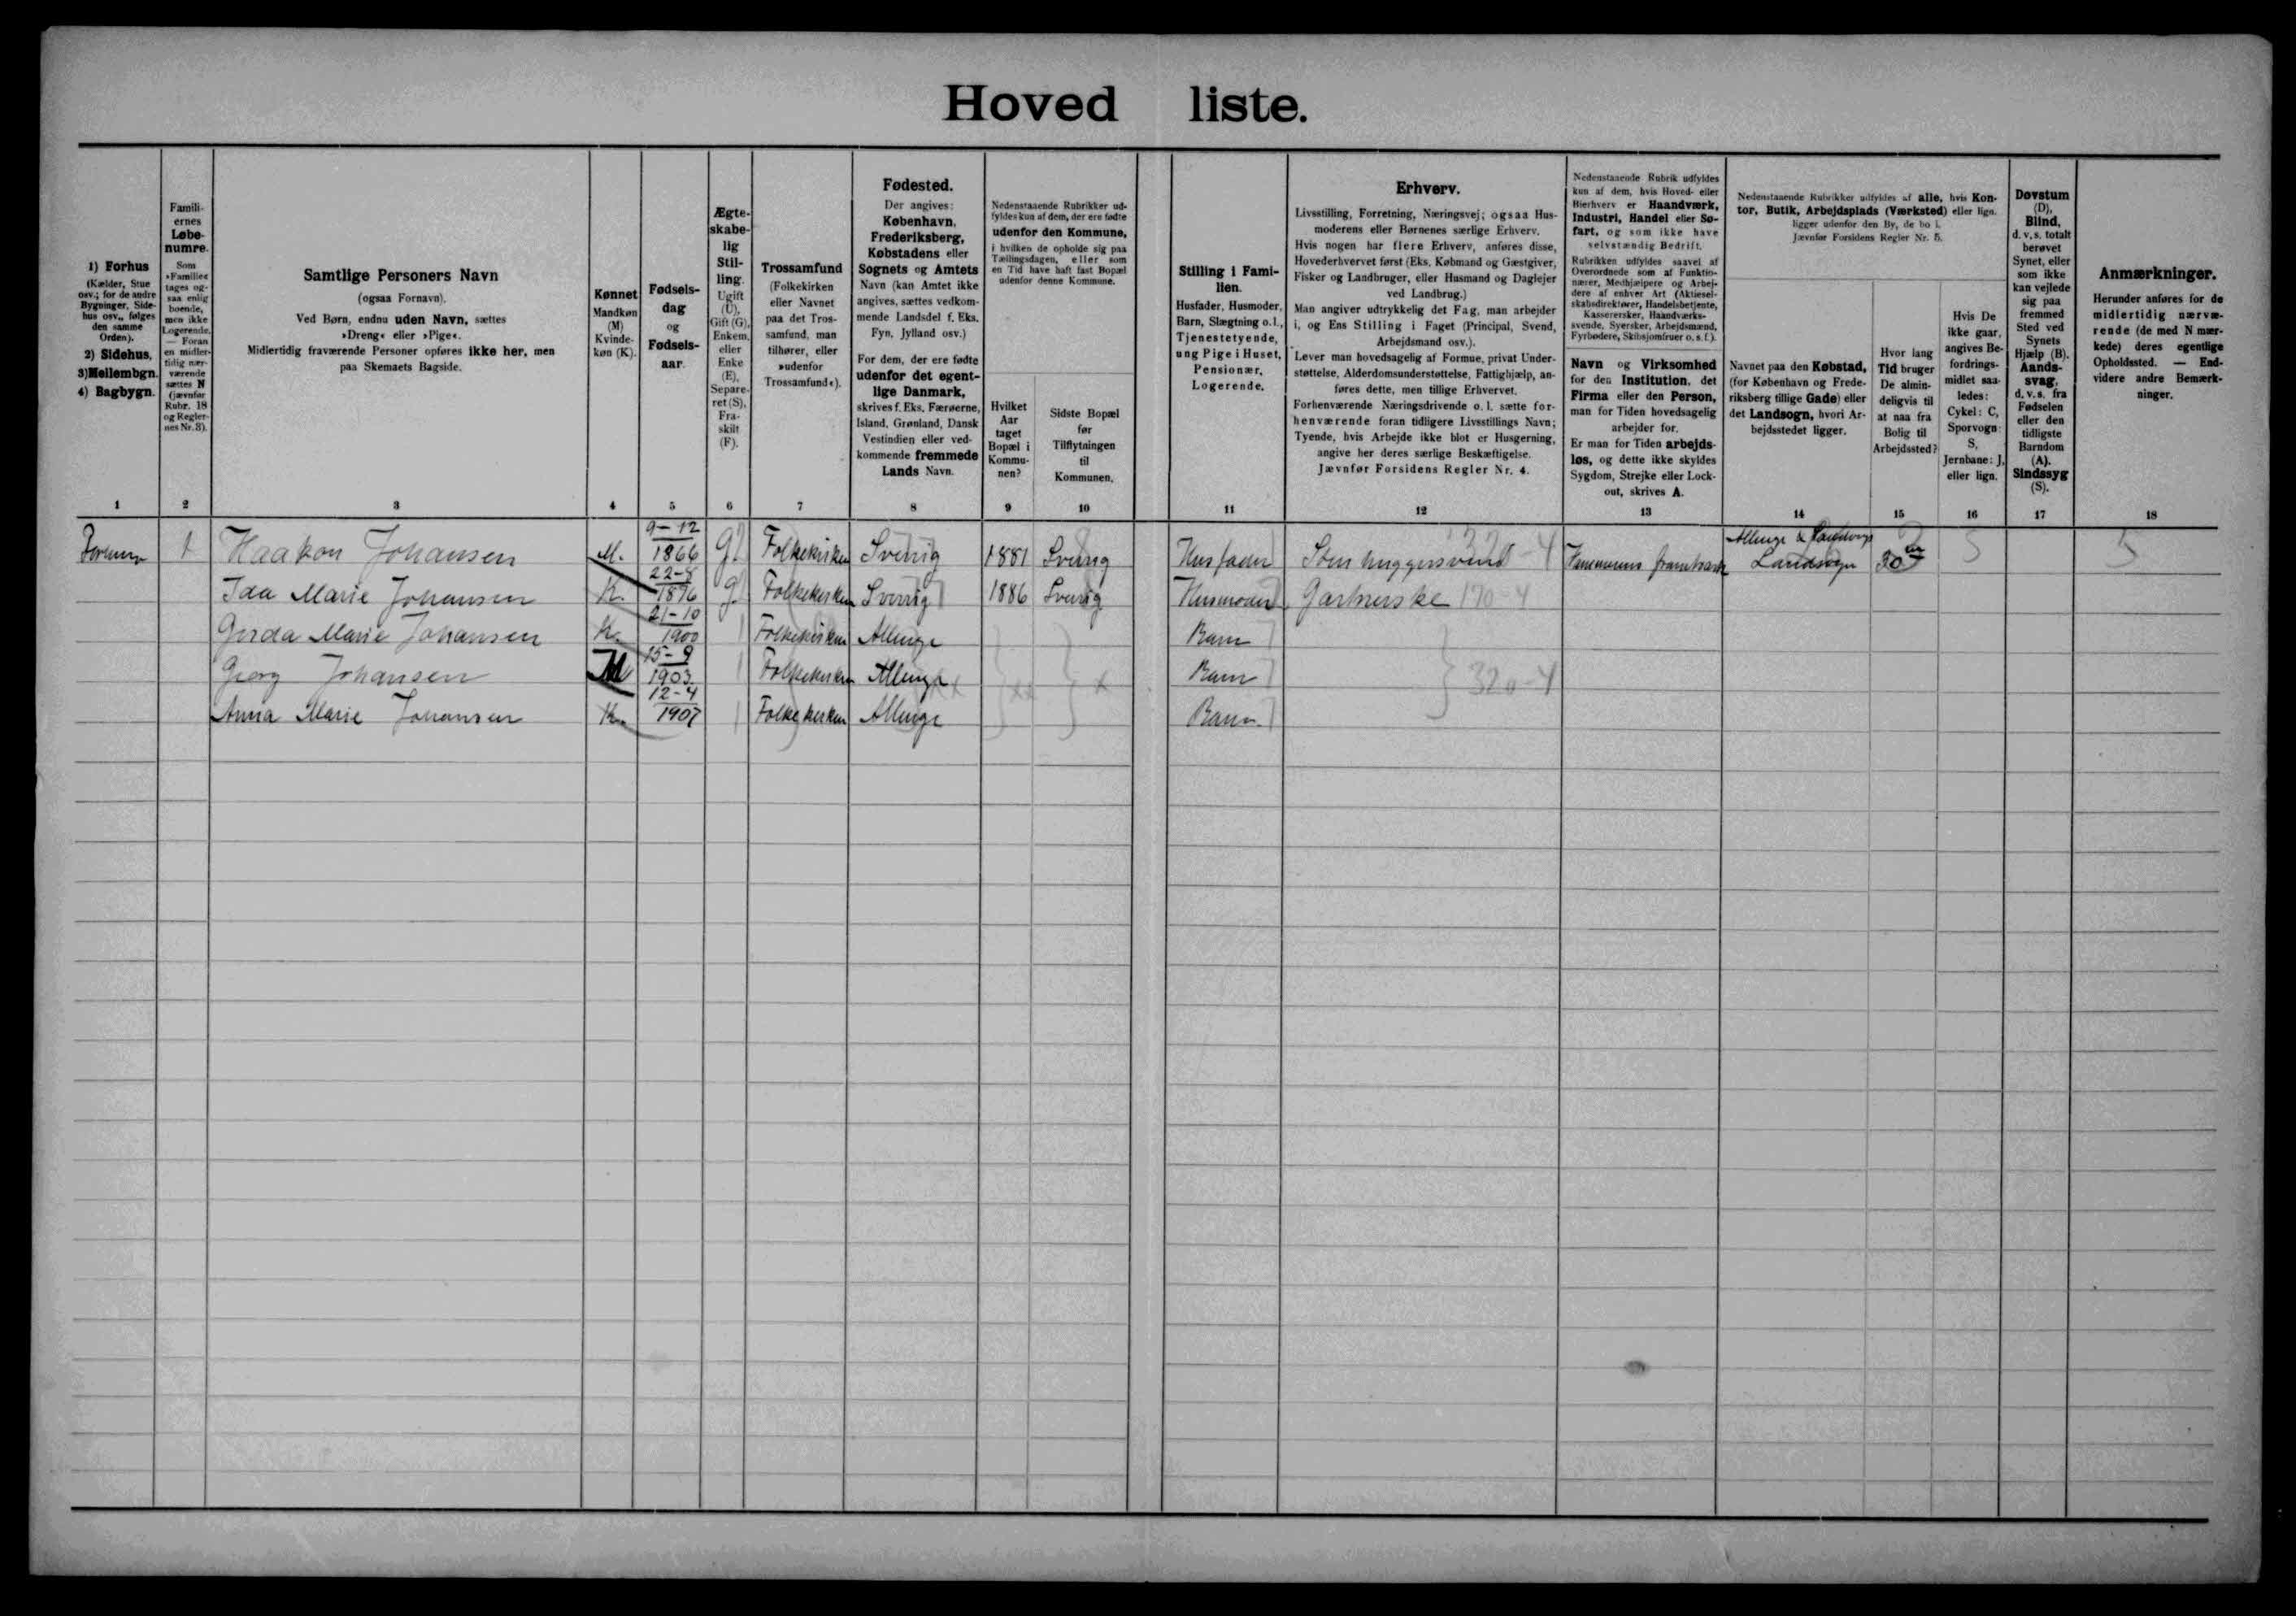 Hoved liste.
1) Forhus
(Kælder, Stue
osv.; for de andre
Bygninger, Side-
hus osv., følges
den samme
Orden).
2) Sidehus,
3) Mellembgn.
4) Bagbygn.
1
Famili-
ernes
Løbe-
numre.
Som
»Familie«
tages og-
saa enlig
boende,
men ikke
Logerende.
— Foran
en midler-
tidig nær-
værende
sættes N
(jævnfør
Rubr. 18
og Regler-
nes Nr. 3).
2
Samtlige Personers Navn
(ogsaa Fornavn).
Ved Børn, endnu uden Navn, sættes
»Dreng« eller »Pige«.
Midlertidig fraværende Personer opføres ikke her, men
paa Skemaets Bagside.
3
Kønnet
Mandkøn
(M)
Kvinde-
køn (K).
4
Fødsels-
dag
og
Fødsels-
aar.
5
Ægte-
skabe-
lig
Stil-
ling.
Ugift
(U),
Gift (G),
Enkem.
eller
Enke
(E),
Separe-
ret (S),
Fra-
skilt
(F).
6
Trossamfund
(Folkekirken
eller Navnet
paa det Tros-
samfund, man
tilhører, eller
»udenfor
Trossamfund«).
7
Fødested.
Der angives:
København,
Frederiksberg,
Købstadens eller
Sognets og Amtets
Navn (kan Amtet ikke
angives, sættes vedkom-
mende Landsdel f. Eks.
Fyn, Jylland osv.)
For dem, der ere fødte
udenfor det egent-
lige Danmark,
skrives f. Eks. Færøerne,
Island, Grønland, Dansk
Vestindien eller ved-
kommende fremmede
Lands Navn.
8
Nedenstaaende Rubrikker ud-
fyldes kun af dem, der ere fødte
udenfor den Kommune,
i hvilken de opholde sig paa
Tællingsdagen, eller som
en Tid have haft fast Bopæl
udenfor denne Kommune.
Hvilket
Aar
taget
Bopæl i
Kommu-
nen?
9
Sidste Bopæl
før
Tilflytningen
til
Kommunen.
10
Stilling i Fami-
lien.
Husfader, Husmoder,
Barn, Slægtning o. l.,
Tjenestetyende,
ung Pige i Huset,
Pensionær,
Logerende.
11
Erhverv.
Livsstilling, Forretning, Næringsvej; ogsaa Hus-
moderens eller Børnenes særlige Erhverv.
Hvis nogen har flere Erhverv, anføres disse,
Hovederhvervet først (Eks. Købmand og Gæstgiver,
Fisker og Landbruger, eller Husmand og Daglejer
ved Landbrug.)
Man angiver udtrykkelig det Fag, man arbejder
i, og Ens Stilling i Faget (Principal, Svend,
Arbejdsmand osv.).
Lever man hovedsagelig af Formue, privat Under-
støttelse, Alderdomsunderstøttelse, Fattighjælp, an-
føres dette, men tillige Erhvervet.
Forhenværende Næringsdrivende o. l. sætte for-
henværende foran tidligere Livsstillings Navn;
Tyende, hvis Arbejde ikke blot er Husgerning,
angive her deres særlige Beskæftigelse.
Jævnfør Forsidens Regler Nr. 4.
12
Nedenstaaende Rubrik udfyldes
kun af dem, hvis Hoved- eller
Bierhverv er Haandværk,
Industri, Handel eller Sø-
fart, og som ikke have
selvstændig Bedrift.
Rubrikken udfyldes saavel af
Overordnede som af Funktio-
nærer, Medhjælpere og Arbej-
dere af enhver Art (Aktiesel-
skabsdirektører, Handelsbetjente,
Kasserersker, Haandværks-
svende, Syersker, Arbejdsmænd,
Fyrbødere, Skibsjomfruer o. s. f.).
Navn og Virksomhed
for den Institution, det
Firma eller den Person,
man for Tiden hovedsagelig
arbejder for.
Er man for Tiden arbejds-
løs, og dette ikke skyldes
Sygdom, Strejke eller Lock-
out, skrives A.
13
Nedenstaaende Rubrikker udfyldes af alle, hvis Kon-
tor, Butik, Arbejdsplads (Værksted) eller lign.
ligger udenfor den By, de bo i.
Jævnfør Forsidens Regler Nr. 5.
Navnet paa den Købstad,
(for København og Frede-
riksberg tillige Gade) eller
det Landsogn, hvori Ar-
bejdsstedet ligger.
14
Hvor lang
Tid bruger
De almin-
deligvis til
at naa fra
Bolig til
Arbejdssted?
15
Hvis De
ikke gaar,
angives Be-
fordrings-
midlet saa-
ledes:
Cykel: C,
Sporvogn:
S,
Jernbane: J,
eller lign.
16
Døvstum
(D),
Blind,
d. v. s. totalt
berøvet
Synet, eller
som ikke
kan vejlede
sig paa
fremmed
Sted ved
Synets
Hjælp (B).
Aands-
svag,
d. v. s. fra
Fødselen
eller den
tidligste
Barndom
(A).
Sindssyg
(S).
17
Anmærkninger.
Herunder anføres for de
midlertidig nærvæ-
rende (de med N mær-
kede) deres egentlige
Opholdssted. — End-
videre andre Bemærk-
ninger.
18
1 Haakon Johansen M. 9-12 1866 G. Folkekirken Sverrig 1881 Sverrig Husfader Stenhuggersvend Allinge & Landsogn 30 5 5
Ida Marie Johansen K. 22-8 1876 G. Folkekirken Sverrig 1886 Sverrig Husmoder Gartnerske 170-4
Gerda Marie Johansen K. 21-10 1900 Folkekirken Allinge Barn
Georg Johansen M 15-9 1903 Folkekirken Allinge Barn 320-4
Anna Marie Johansen K. 12-4 1907 Folkekirken Allinge Barn